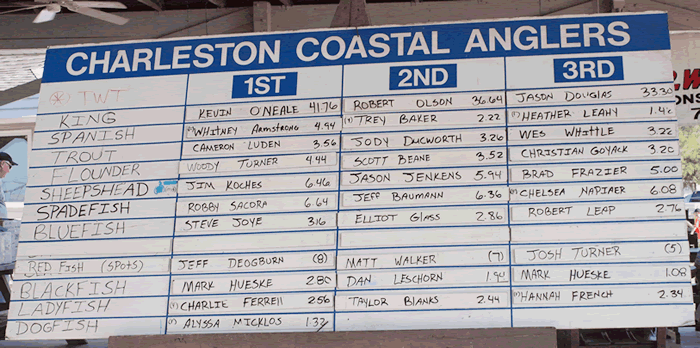 CHARLESTON COASTAL ANGLERS
1ST 2ND 3RD
TWT
KING KEVIN O'NEALE 41.76 ROBERT OLSON 36.64 JASON DOUGLAS 33.30
SPANISH (Y) WHITNEY ARMSTRONG 4.94 (Y) TREY BAKER 2.22 HEATHER LEAHY 1.42
TROUT CAMERON LUDEN 3.56 JODY DUCWORTH 3.26 WES WHITTLE 3.22
FLOUNDER WOODY TURNER 4.44 SCOTT BEANE 3.52 CHRISTIAN GOYACK 3.20
SHEEPSHEAD JIM KOCHES 6.46 JASON JENKENS 5.94 BRAD FRAZIER 5.00
SPADEFISH ROBBY SACORA 6.64 JEFF BAUMANN 6.36 CHELSEA NAPIAER 6.08
BLUEFISH STEVE JOYE 3.16 ELLIOT GLASS 2.86 ROBERT LEAP 2.76
RED FISH (SPOTS) JEFF DEOGBURN (8) MATT WALKER (7) JOSH TURNER (5)
BLACKFISH MARK HUESKE 2.80 DAN LESCHORN MARK HUESKE 1.08
LADYFISH (Y) CHARLIE FERRELL 2.56 TAYLOR BLANKS 2.44 (Y) HANNAH FRENCH 2.34
DOGFISH (Y) ALYSSA MICKLOS 1.32